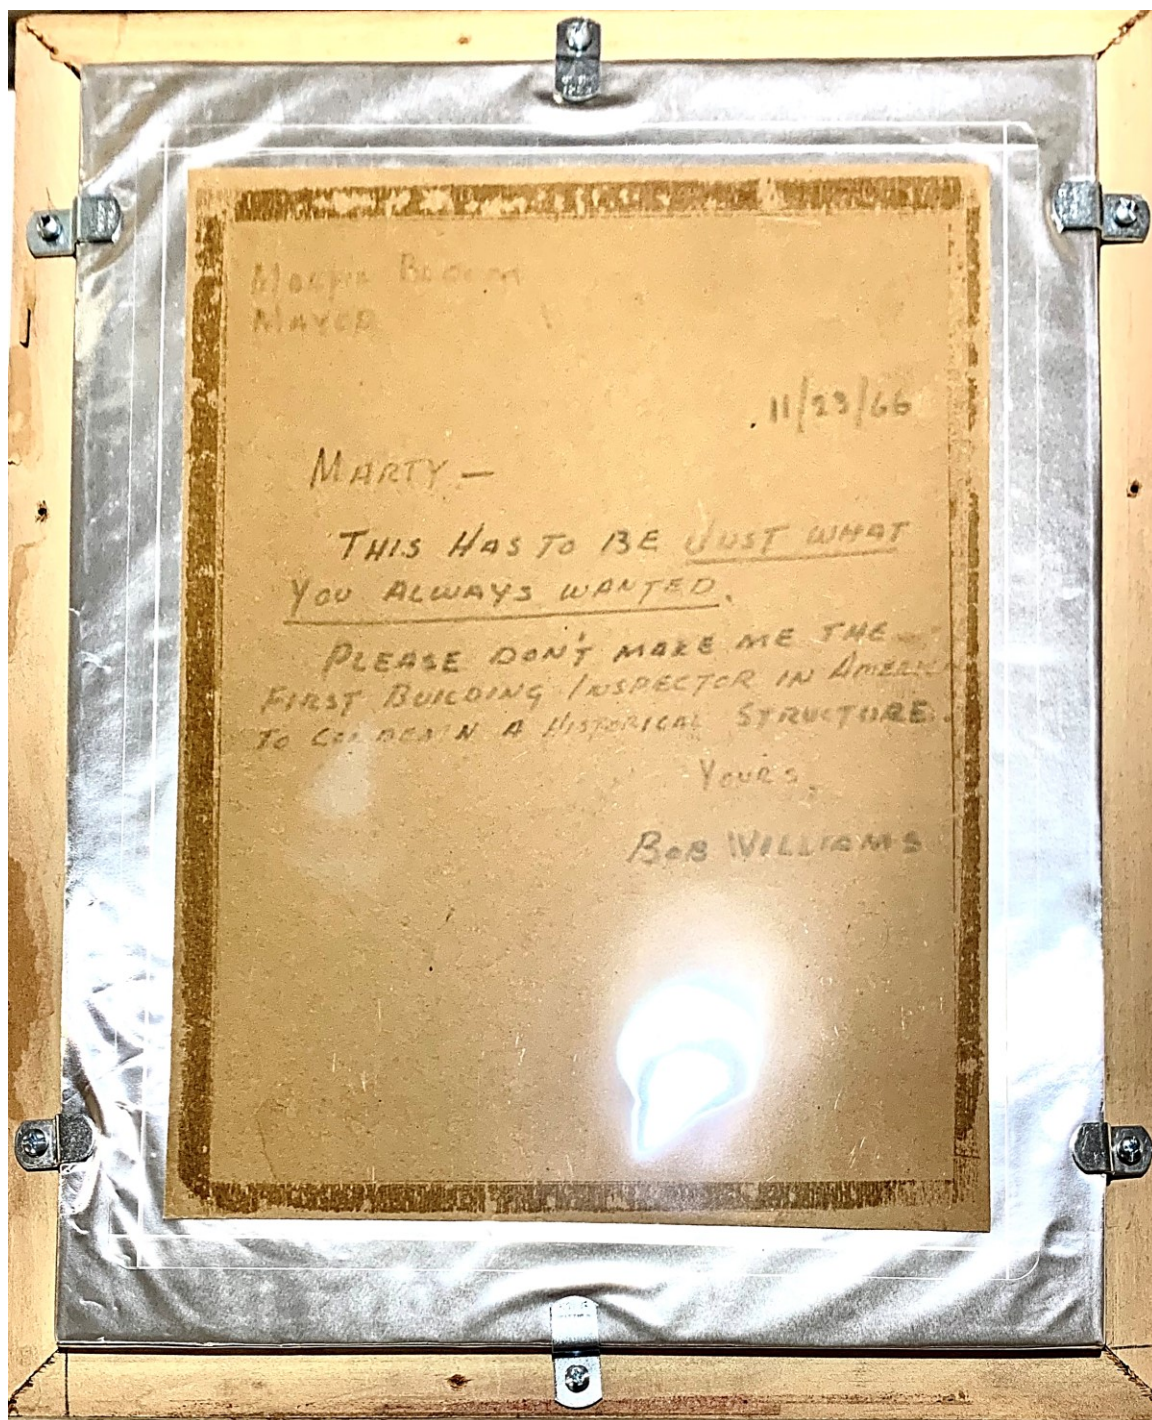 MAYOR
11/23/66
MARTY —
THIS HAS TO BE JUST WHAT
YOU ALWAYS WANTED.
PLEASE DON'T MAKE ME THE
FIRST BUILDING INSPECTOR IN AMERICA
TO CONDEMN A HISTORICAL STRUCTURE.
YOURS,
BOB WILLIAMS